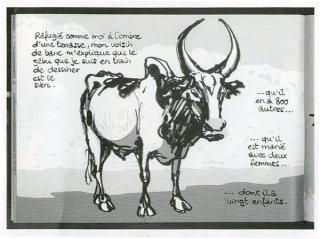 Réfugié comme moi à l'ombre
d'une terrasse, mon voisin
de banc m'explique que le
zébu que je suis en train
de dessiner
est le
sien.
...qu'il
en a 800
autres...
...qu'il
est marié
avec deux
femmes...
...dont il a
vingt enfants.